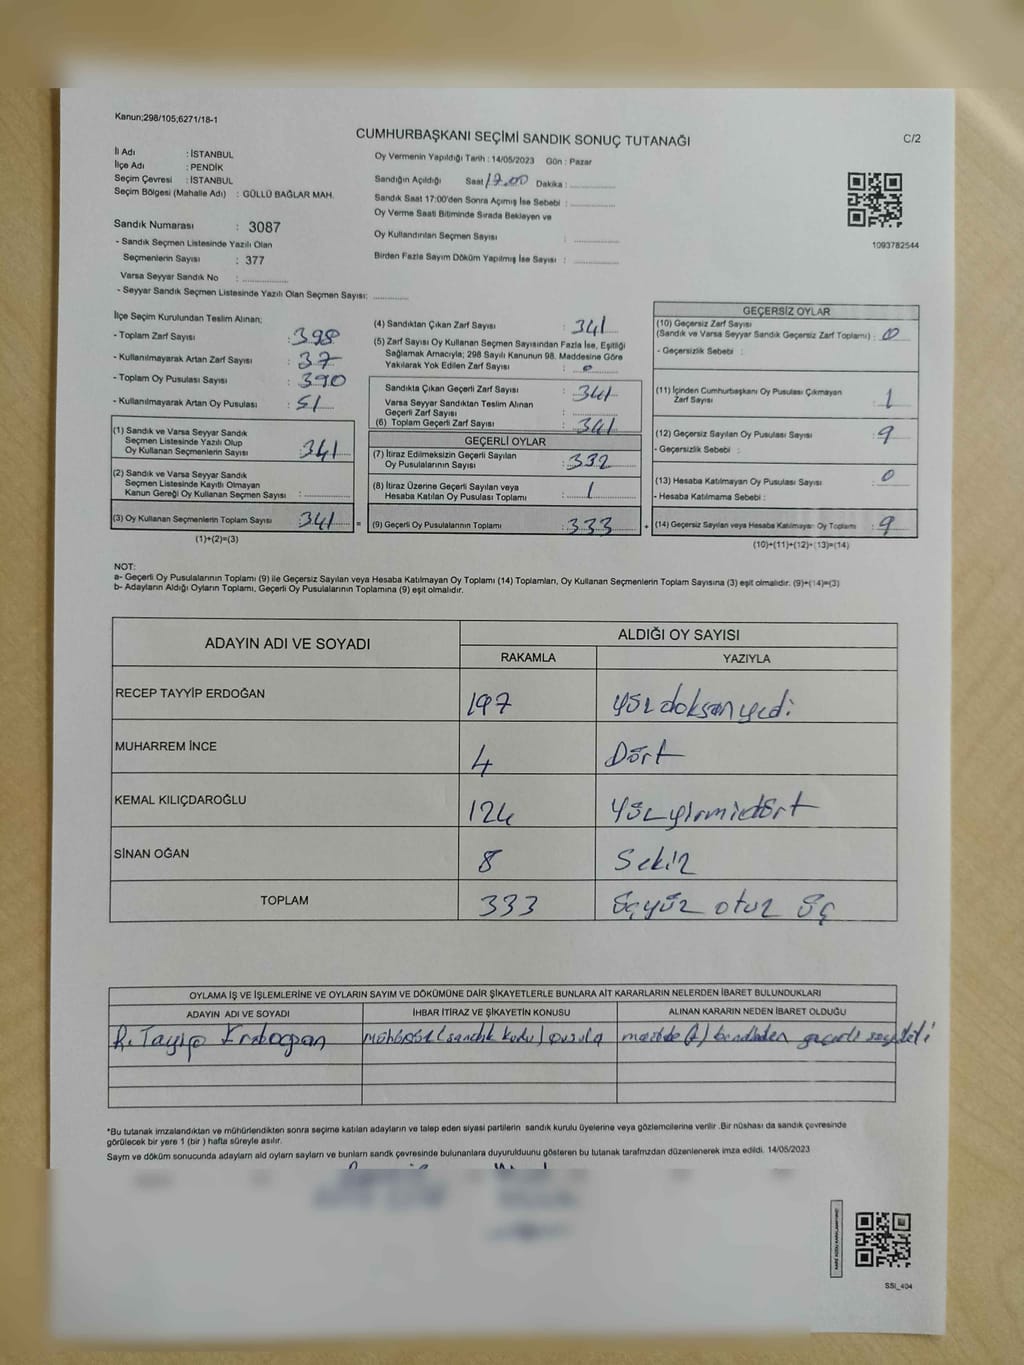 Kanun;298/105;6271/18-1
CUMHURBAŞKANI SEÇİMİ SANDIK SONUÇ TUTANAĞI
C/2
İl Adı : İSTANBUL
İlçe Adı : PENDİK
Seçim Çevresi : İSTANBUL
Seçim Bölgesi (Mahalle Adı) : GÜLLÜ BAĞLAR MAH.
Sandık Numarası : 3087
- Sandık Seçmen Listesinde Yazılı Olan
Seçmenlerin Sayısı : 377
Varsa Seyyar Sandık No : ..............
- Seyyar Sandık Seçmen Listesinde Yazılı Olan Seçmen Sayısı: ...........
Oy Vermenin Yapıldığı Tarih : 14/05/2023 Gün : Pazar
Sandığın Açıldığı Saat 17.00 Dakika : ..............
Sandık Saat 17:00'den Sonra Açımış İse Sebebi : ..............
Oy Verme Saati Bitiminde Sırada Bekleyen ve
Oy Kullandırılan Seçmen Sayısı : ..............
Birden Fazla Sayım Döküm Yapılmış İse Sayısı : ..............
1093782544
İlçe Seçim Kurulundan Teslim Alınan;
- Toplam Zarf Sayısı : 398
- Kullanılmayarak Artan Zarf Sayısı : 37
- Toplam Oy Pusulası Sayısı : 390
- Kullanılmayarak Artan Oy Pusulası : 51
(1) Sandık ve Varsa Seyyar Sandık
Seçmen Listesinde Yazılı Olup
Oy Kullanan Seçmenlerin Sayısı : 341
(2) Sandık ve Varsa Seyyar Sandık
Seçmen Listesinde Kayıtlı Olmayan
Kanun Gereği Oy Kullanan Seçmen Sayısı : ..............
(3) Oy Kullanan Seçmenlerin Toplam Sayısı : 341 =
(1)+(2)=(3)
(4) Sandıktan Çıkan Zarf Sayısı : 341
(5) Zarf Sayısı Oy Kullanan Seçmen Sayısından Fazla İse, Eşitliği
Sağlamak Amacıyla; 298 Sayılı Kanunun 98. Maddesine Göre
Yakılarak Yok Edilen Zarf Sayısı : 0
Sandıkta Çıkan Geçerli Zarf Sayısı : 341
Varsa Seyyar Sandıktan Teslim Alınan
Geçerli Zarf Sayısı : ..............
(6) Toplam Geçerli Zarf Sayısı : 341
GEÇERLİ OYLAR
(7) İtiraz Edilmeksizin Geçerli Sayılan
Oy Pusulalarının Sayısı : 332
(8) İtiraz Üzerine Geçerli Sayılan veya
Hesaba Katılan Oy Pusulası Toplamı : 1
(9) Geçerli Oy Pusulalarının Toplamı : 333 +
GEÇERSİZ OYLAR
(10) Geçersiz Zarf Sayısı
(Sandık ve Varsa Seyyar Sandık Geçersiz Zarf Toplamı) : 0
- Geçersizlik Sebebi :
(11) İçinden Cumhurbaşkanı Oy Pusulası Çıkmayan
Zarf Sayısı : 1
(12) Geçersiz Sayılan Oy Pusulası Sayısı : 9
- Geçersizlik Sebebi :
(13) Hesaba Katılmayan Oy Pusulası Sayısı : 0
- Hesaba Katılmama Sebebi :
(14) Geçersiz Sayılan veya Hesaba Katılmayan Oy Toplamı : 9
(10)+(11)+(12)+(13)=(14)
NOT:
a- Geçerli Oy Pusulalarının Toplamı (9) ile Geçersiz Sayılan veya Hesaba Katılmayan Oy Toplamı (14) Toplamları, Oy Kullanan Seçmenlerin Toplam Sayısına (3) eşit olmalıdır. (9)+(14)=(3)
b- Adayların Aldığı Oyların Toplamı, Geçerli Oy Pusulalarının Toplamına (9) eşit olmalıdır.
ADAYIN ADI VE SOYADI
ALDIĞI OY SAYISI
RAKAMLA YAZIYLA
RECEP TAYYİP ERDOĞAN 197 yüzdoksanyedi
MUHARREM İNCE 4 Dört
KEMAL KILIÇDAROĞLU 124 Yüzyirmidört
SİNAN OĞAN 8 Sekiz
TOPLAM 333 üçyüz otuz üç
OYLAMA İŞ VE İŞLEMLERİNE VE OYLARIN SAYIM VE DÖKÜMÜNE DAİR ŞİKAYETLERLE BUNLARA AİT KARARLARIN NELERDEN İBARET BULUNDUKLARI
ADAYIN ADI VE SOYADI İHBAR İTİRAZ VE ŞİKAYETİN KONUSU ALINAN KARARIN NEDEN İBARET OLDUĞU
R. Tayip Erdoğan (sandık kurulu) pusula geçerli
*Bu tutanak imzalandıktan ve mühürlendikten sonra seçime katılan adayların ve talep eden siyasi partilerin sandık kurulu üyelerine veya gözlemcilerine verilir .Bir nüshası da sandık çevresinde
görülecek bir yere 1 (bir ) hafta süreyle asılır.
Sayım ve döküm sonucunda adayların ald oyların sayların ve bunların sandk çevresinde bulunanlara duyurulduunu gösteren bu tutanak tarafmzdan düzenlenerek imza edildi. 14/05/2023
SSI_404